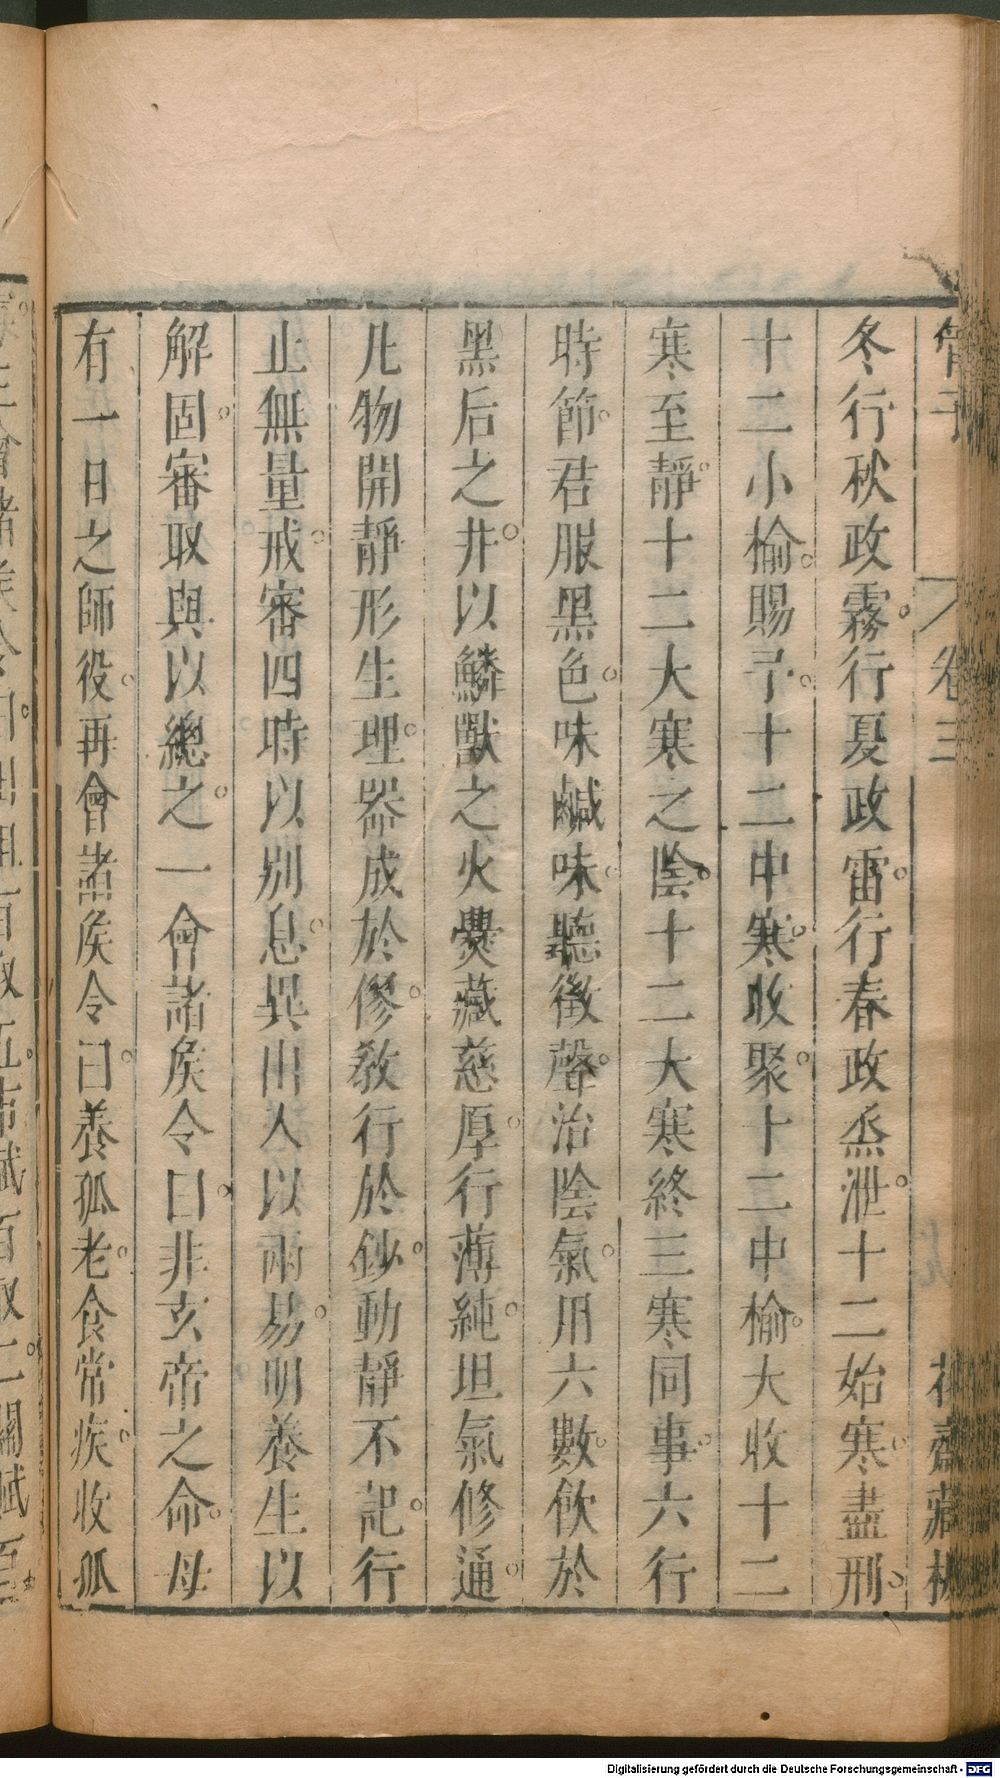 管子
卷三
花齋藏板
冬行秋政霧行夏政雷行春政烝泄十二始寒盡刑
十二小榆賜予十二中寒收聚十二中榆大收十二
寒至靜十二大寒之陰十二大寒終三寒同事六行
時節君服黑色味鹹味聽徵聲治陰氣用六數飲於
黑后之井以鱗獸之火爨藏慈厚行薄純坦氣修通
凡物開靜形生理器成於僇教行於鈔動靜不記行
止無量戒審四時以別息異出入以兩易明養生以
解固審取與以總之一會諸矦令曰非玄帝之命毋
有一日之師役再會諸矦令曰養孤老食常疾收孤
Digitalisierung gefördert durch die Deutsche Forschungsgemeinschaft - DFG